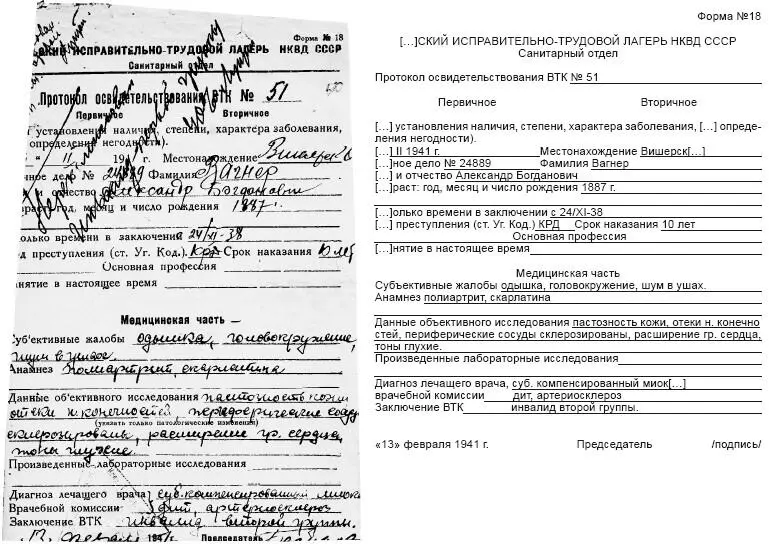 Форма № 18
СКИЙ ИСПРАВИТЕЛЬНО-ТРУДОВОЙ ЛАГЕРЬ НКВД СССР
Санитарный отдел
Протокол освидетельствования ВТК № 51
Первичное Вторичное
установления наличия, степени, характера заболевания,
определения негодности).
" II 194 г. Местонахождение Вишерск
ное дело № 24889 Фамилия Вагнер
и отчество Александр Богданович
раст: год, месяц и число рождения 1887 г.
олько времени в заключении с 24/XI-38
преступления (ст. Уг. Код.) КРД Срок наказания 10 лет
Основная профессия
анятие в настоящее время
Медицинская часть —
Субъективные жалобы одышка, головокружение,
шум в ушах.
Анамнез полиартрит, скарлатина
Данные объективного исследования пастозность кожи
отеки н. конечностей, периферические сосуды
(указать только патологические изменения)
склерозированы, расширение гр. сердца,
тоны глухие.
Произведенные лабораторные исследования
Диагноз лечащего врача суб. компенсированный миок
Врачебной комиссии дит, артериосклероз
Заключение ВТК инвалид второй группы.
13 февраля 194 г. Председатель
Форма №18
[…]СКИЙ ИСПРАВИТЕЛЬНО-ТРУДОВОЙ ЛАГЕРЬ НКВД СССР
Санитарный отдел
Протокол освидетельствования ВТК № 51
Первичное Вторичное
[…] установления наличия, степени, характера заболевания, […] опреде-
ления негодности).
[…] II 1941 г. Местонахождение Вишерск[…]
[…]ное дело № 24889 Фамилия Вагнер
[…] и отчество Александр Богданович
[…]раст: год, месяц и число рождения 1887 г.
[…]олько времени в заключении с 24/XI-38
[…] преступления (ст. Уг. Код.) КРД Срок наказания 10 лет
Основная профессия
[…]нятие в настоящее время
Медицинская часть
Субъективные жалобы одышка, головокружение, шум в ушах.
Анамнез полиартрит, скарлатина
Данные объективного исследования пастозность кожи, отеки н. конечно
стей, периферические сосуды склерозированы, расширение гр. сердца,
тоны глухие.
Произведенные лабораторные исследования
Диагноз лечащего врача, суб. компенсированный миок[…]
врачебной комиссии дит, артериосклероз
Заключение ВТК инвалид второй группы.
«13» февраля 1941 г. Председатель /подпись/